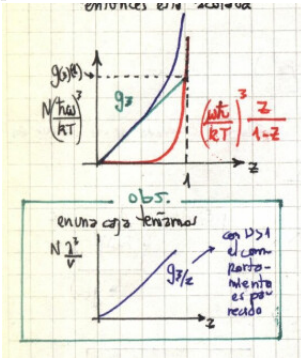 entonces
g₃(1)
N(ħω/kT)³
g₃
(ωħ/kT)³ z/1-z
z
1
obs.
en una caja teníamos
N λ³/V
g3/2
z
con
el com-
porta-
miento
es pa
recido